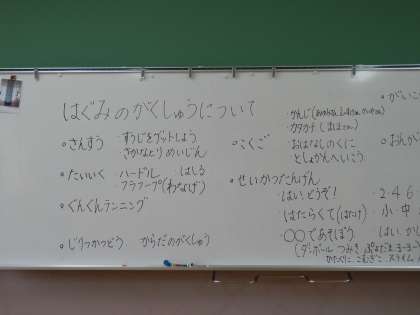 はぐみのがくしゅうについて
○さんすう ・すうじをゲットしよう
さかなとり めいじん
○たいいく ・ハードル ・はしる
・フラフープ(わなげ)
○ぐんぐんランニング
○じりつかつどう からだのがくしゅう
○こくご ・かんじ
・カタカナ
・おはなしのくに
としょかんへいこう
○せいかつたんげん
・はい、どうぞ!
・はたらくて(はたけ)
・○○であそぼう
(ダンボール つみき
かたくりこ こむぎこ スライム
○がいこ
○おんが
・2・4・6
・小・中
・はい、か